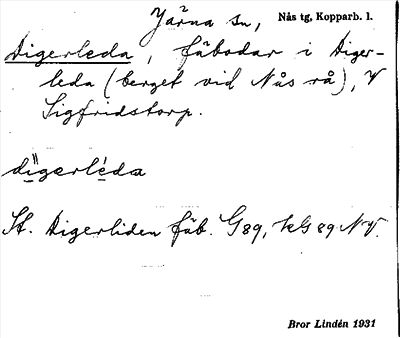 Järna sn, Nås tg, Kopparb. l.
Digerleda, fäbodar i Diger-
leda (berget vid Nås rå), V
Sigfridstorp.
digerléda
St. Digerliden fäb. G89, kG89 NV.
Bror Lindén 1931